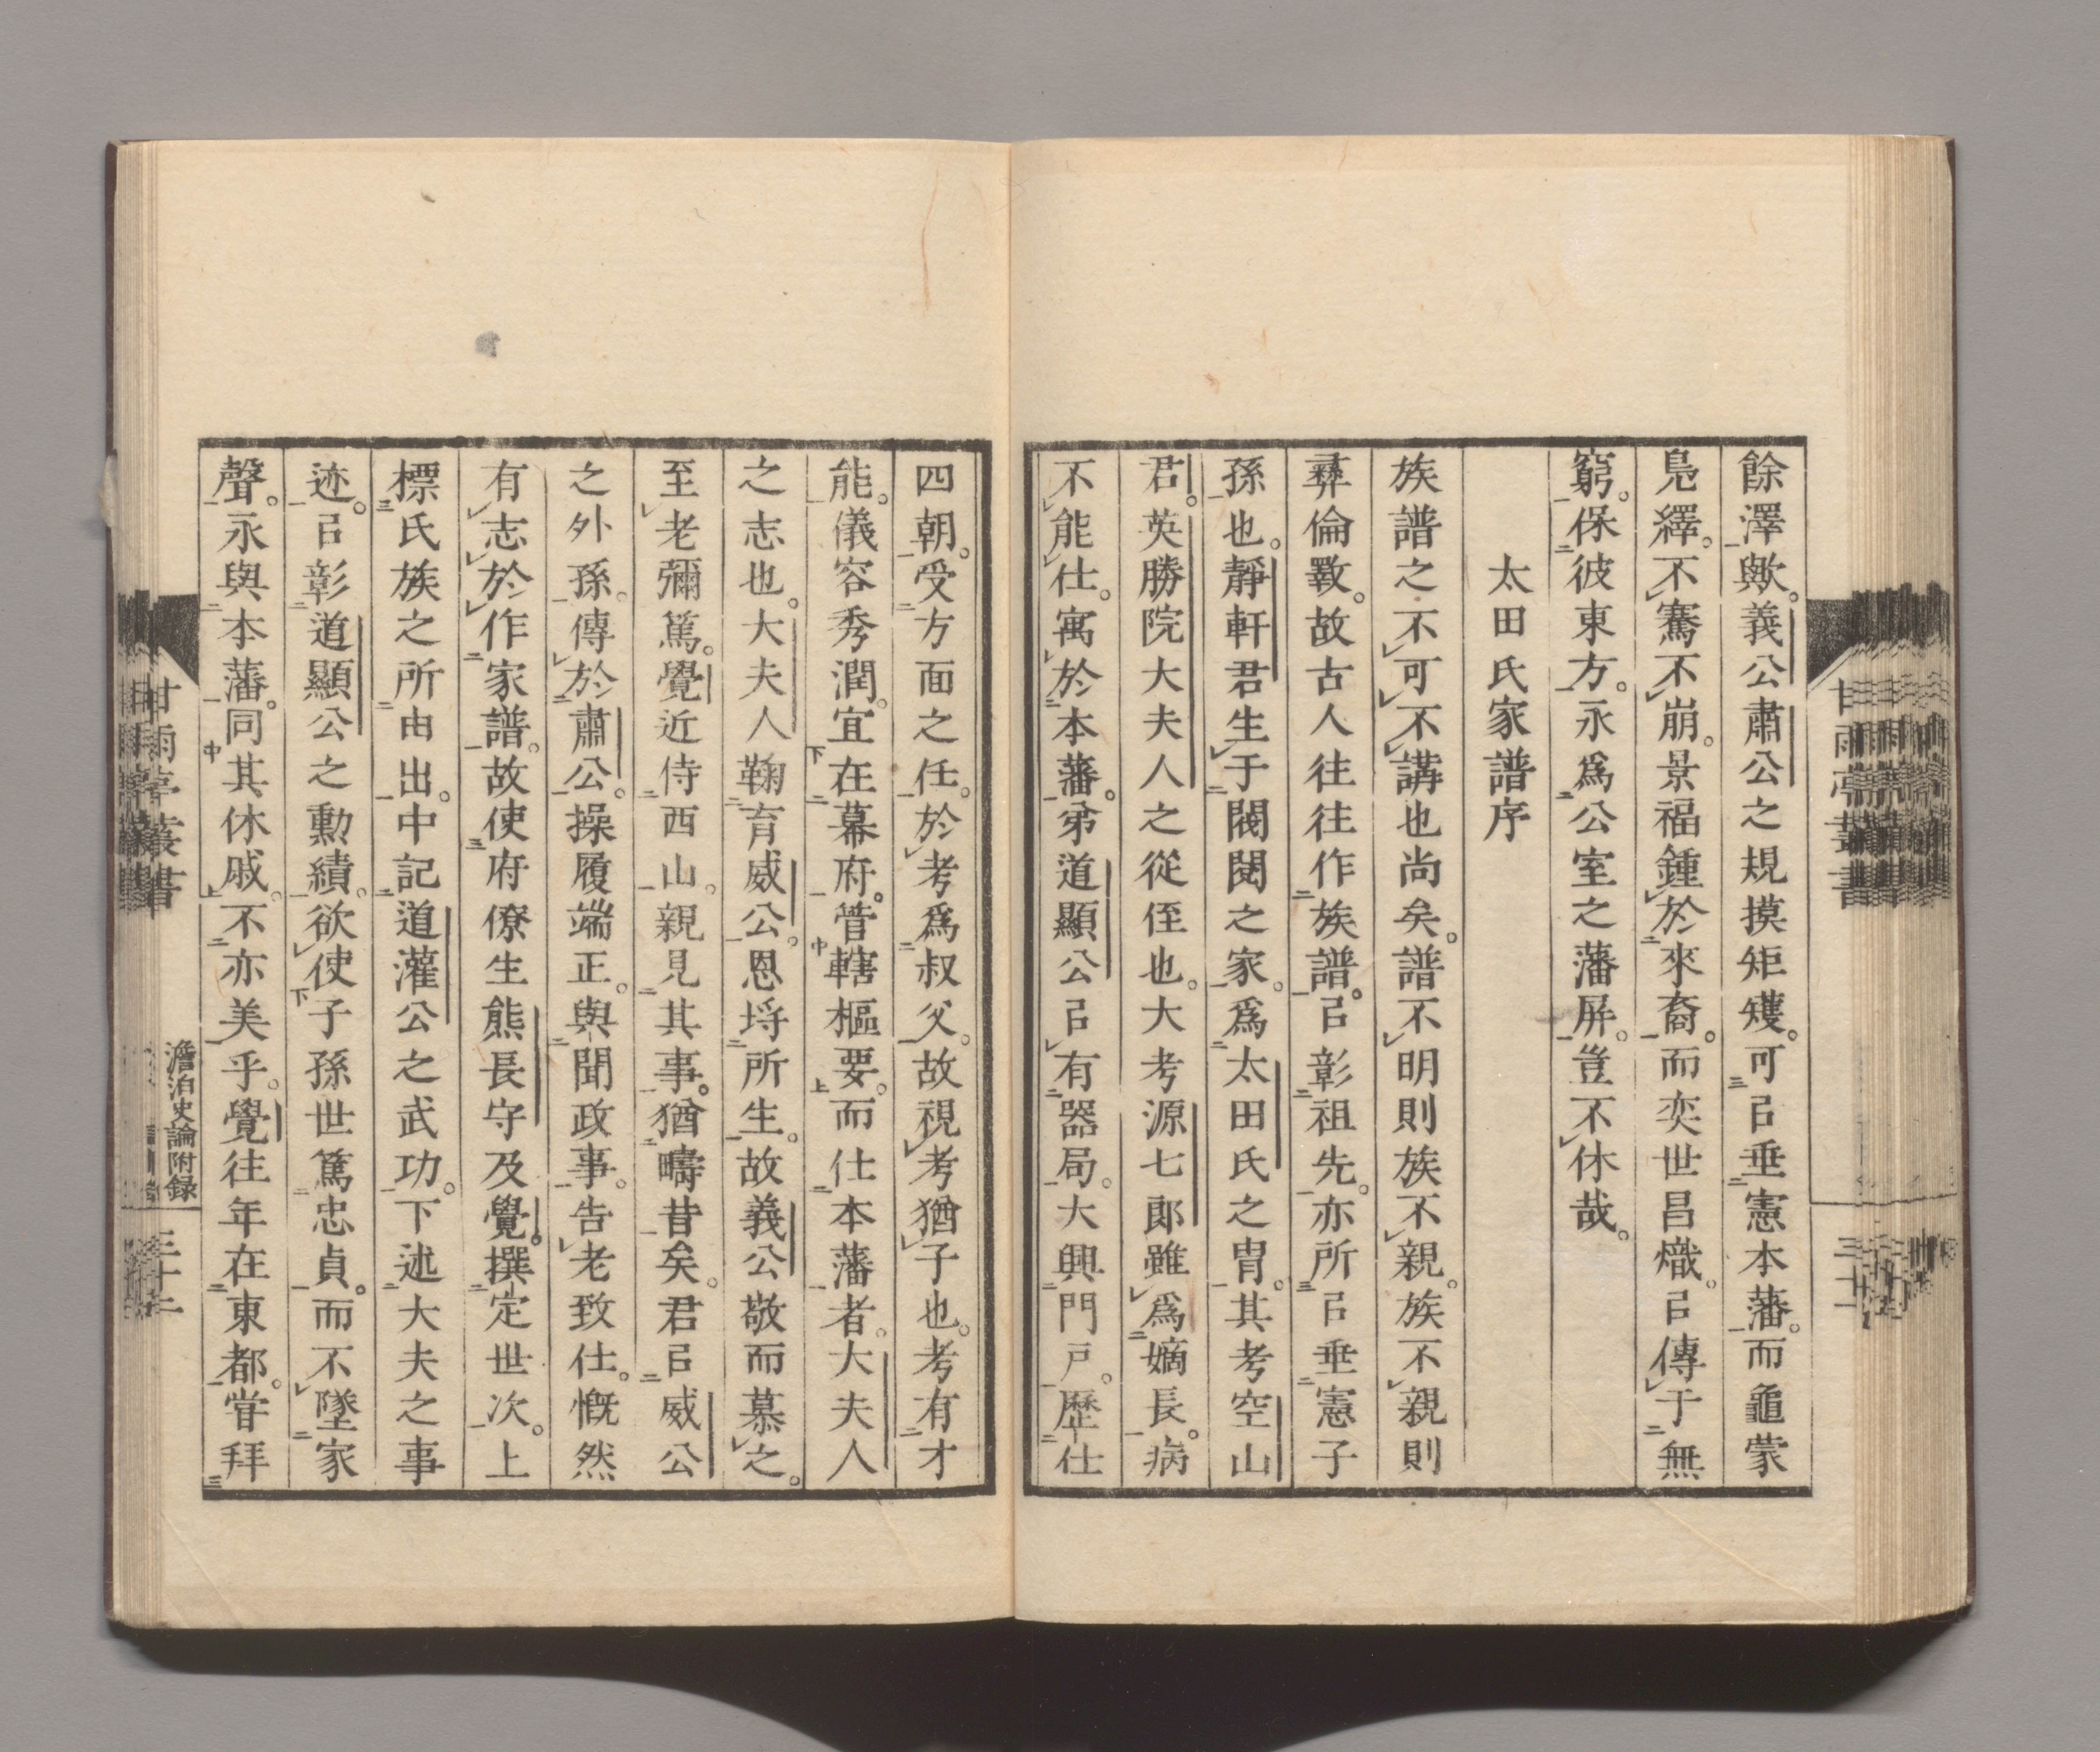 餘澤歟。義公肅公之規摸矩矱。可㠯垂憲本藩。而龜蒙
鳧繹。不騫不崩。景福鍾於來裔。而奕世昌熾。㠯傳于無
窮。保彼東方。永爲公室之藩屏。豈不休哉。
太田氏家譜序
族譜之不可不講也尚矣。譜不明則族不親。族不親則
彝倫斁。故古人往往作族譜。㠯彰祖先。亦所㠯垂憲子
孫也。靜軒君生于閥閱之家。爲太田氏之胄。其考空山
君。英勝院大夫人之從侄也。大考源七郎雖爲嫡長。病
不能仕。寓於本藩。弟道顯公㠯有器局。大興門戶。歷仕
四朝。受方面之任。於考爲叔父。故視考猶子也。考有才
能。儀容秀潤。宜在幕府。管轄樞要。而仕本藩者。大夫人
之志也。大夫人鞠育威公。恩埒所生。故義公敬而慕之。
至老彌篤。覺近侍西山。親見其事。猶疇昔矣。君㠯威公
之外孫。傳於肅公。操履端正。與聞政事。告老致仕。慨然
有志於作家譜。故使府僚生熊長守及覺。撰定世次。上
標氏族之所由出。中記道灌公之武功。下述大夫之事
迹。㠯彰道顯公之勳績。欲使子孫世篤忠貞。而不墜家
聲。永與本藩。同其休戚。不亦美乎。覺往年在東都。甞拜
甘雨亭叢書
澹泊史論附録
三十二